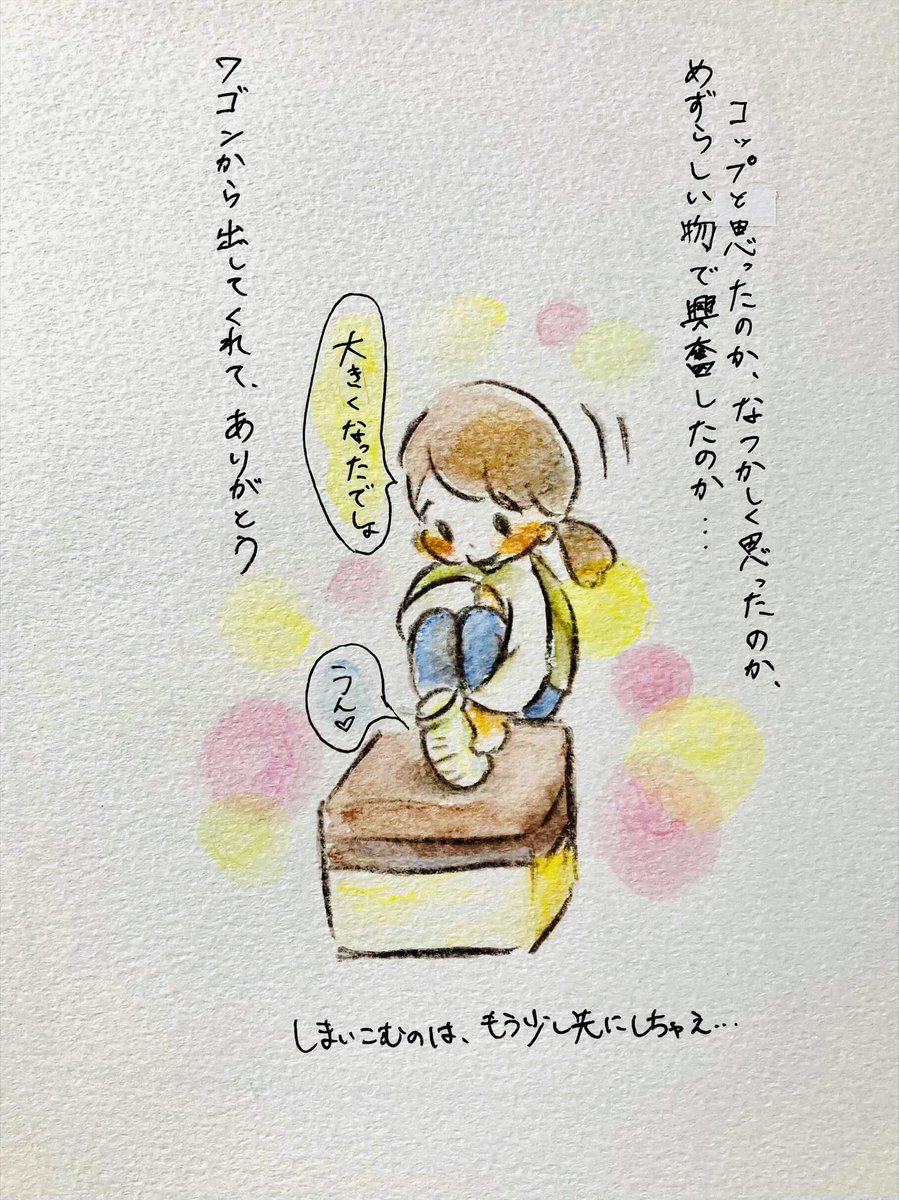 コップと思ったのか、なつかしく思ったのか、
めずらしい物で興奮したのか...
大きくなったでしょ
うん♡
ワゴンから出してくれて、ありがとう
しまいこむのは、もう少し先にしちゃえ...